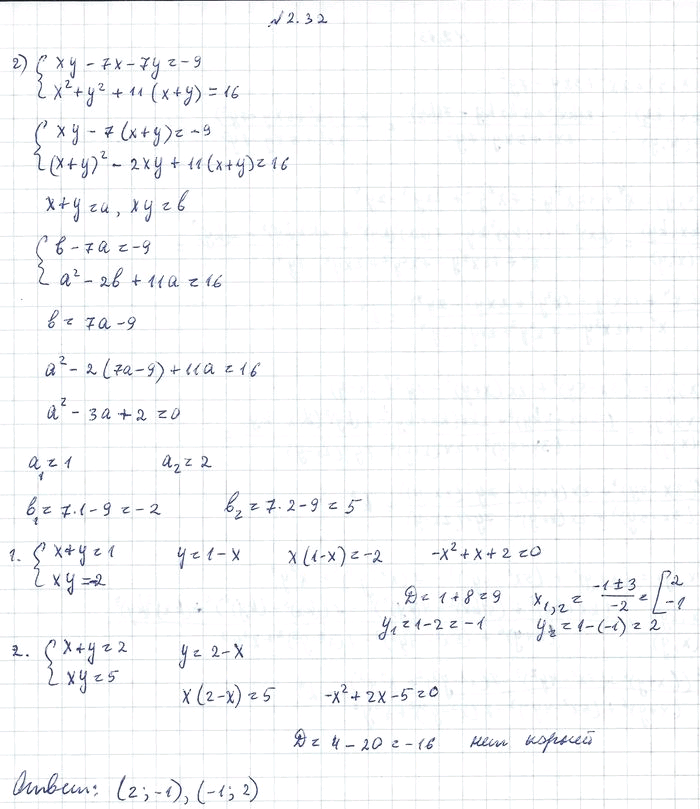 № 2.32
2) { xy - 7x - 7y = -9
x² + y² + 11(x+y) = 16
{ xy - 7(x+y) = -9
(x+y)² - 2xy + 11(x+y) = 16
x+y = a, xy = b
{ b - 7a = -9
a² - 2b + 11a = 16
b = 7a - 9
a² - 2(7a-9) + 11a = 16
a² - 3a + 2 = 0
a₁ = 1 a₂ = 2
b₁ = 7·1 - 9 = -2 b₂ = 7·2 - 9 = 5
1. { x+y = 1 y = 1-x x(1-x) = -2 -x² + x + 2 = 0
xy = -2
D = 1 + 8 = 9 x₁,₂ = (-1 ± 3)/(-2) = [ 2 -1
y₁ = 1-2 = -1 y₂ = 1-(-1) = 2
2. { x+y = 2 y = 2-x
xy = 5
x(2-x) = 5 -x² + 2x - 5 = 0
D = 4 - 20 = -16 нет корней
Ответ: (2; -1), (-1; 2)